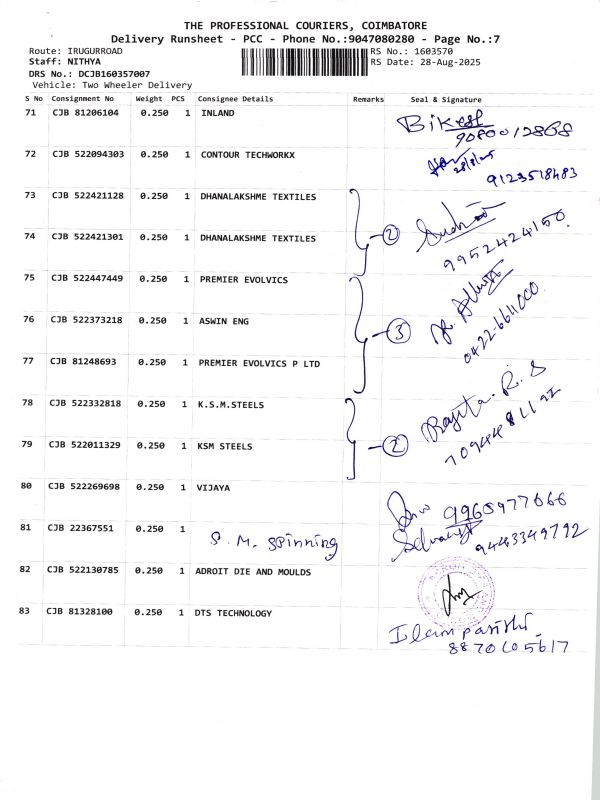 THE PROFESSIONAL COURIERS, COIMBATORE
Delivery Runsheet - PCC - Phone No.:9047080280 - Page No.:7
Route: IRUGURROAD
RS No.: 1603570
Staff: NITHYA
RS Date: 28-Aug-2025
DRS No.: DCJB160357007
Vehicle: Two Wheeler Delivery
S No Consignment No Weight PCS Consignee Details Remarks Seal & Signature
71 CJB 81206104 0.250 1 INLAND
72 CJB 522094303 0.250 1 CONTOUR TECHWORKX
9123518483
73 CJB 522421128 0.250 1 DHANALAKSHME TEXTILES
74 CJB 522421301 0.250 1 DHANALAKSHME TEXTILES
2
9952424150
75 CJB 522447449 0.250 1 PREMIER EVOLVICS
76 CJB 522373218 0.250 1 ASWIN ENG
3
0422-6611000
77 CJB 81248693 0.250 1 PREMIER EVOLVICS P LTD
78 CJB 522332818 0.250 1 K.S.M.STEELS
79 CJB 522011329 0.250 1 KSM STEELS
2
80 CJB 522269698 0.250 1 VIJAYA
81 CJB 22367551 0.250 1 S. M. Spinning
9443349792
82 CJB 522130785 0.250 1 ADROIT DIE AND MOULDS
83 CJB 81328100 0.250 1 DTS TECHNOLOGY